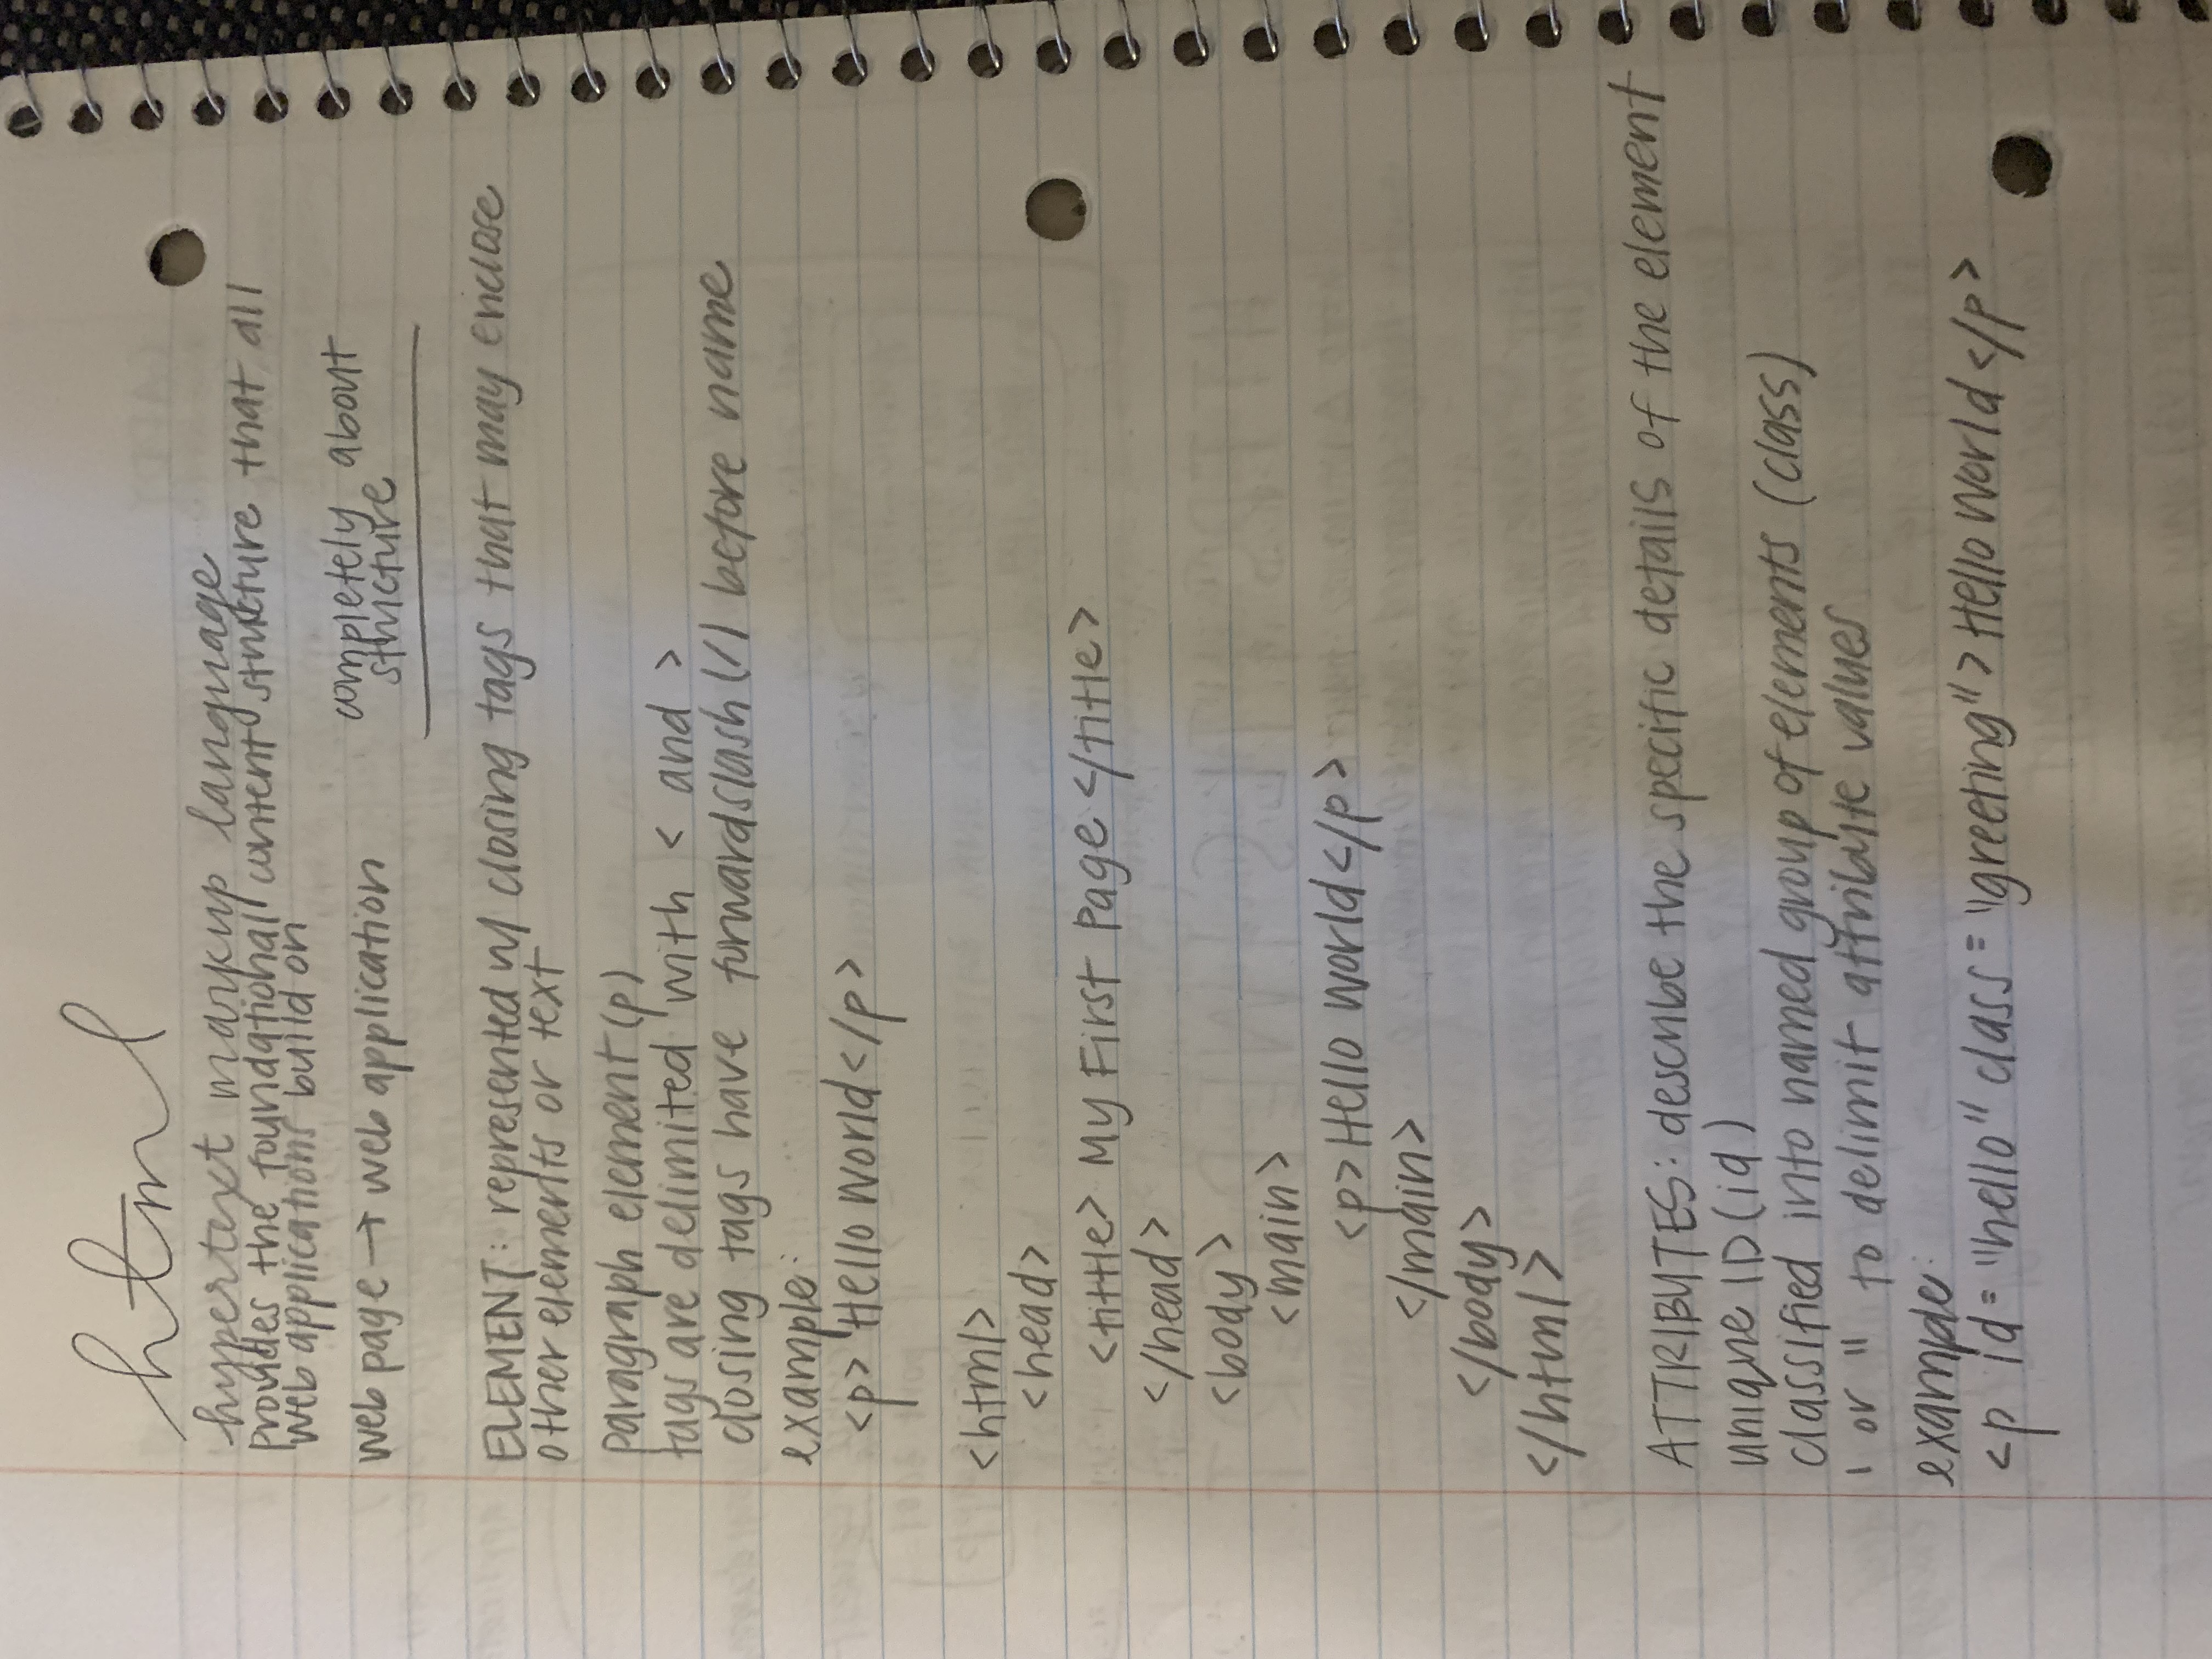 html
hypertext markup language
provides the foundational content structure that all
web applications build on
web page → web application
completely about
structure
ELEMENT: represented w/ closing tags that may enclose
other elements or text
paragraph element (p)
tags are delimited with < and >
closing tags have forward slash (/) before name
example:
<p> Hello World</p>
<html>
<head>
<tittle> My First Page </title>
</head>
<body>
<main>
<p>Hello World</p>
</main>
</body>
</html>
ATTRIBUTES: describe the specific details of the element
unique ID (id)
classified into named group of elements (class)
' or " to delimit attribute values
example:
<p id="hello" class="greeting">Hello World</p>